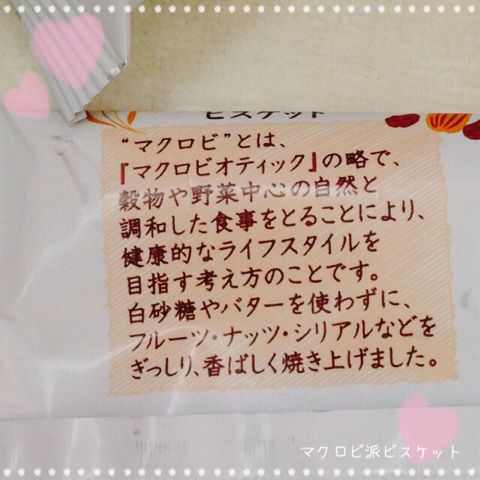 ビスケット
“マクロビ”とは、
『マクロビオティック』の略で、
穀物や野菜中心の自然と
調和した食事をとることにより、
健康的なライフスタイルを
目指す考え方のことです。
白砂糖やバターを使わずに、
フルーツ・ナッツ・シリアルなどを
ぎっしり、香ばしく焼き上げました。
マクロビ派ビスケット